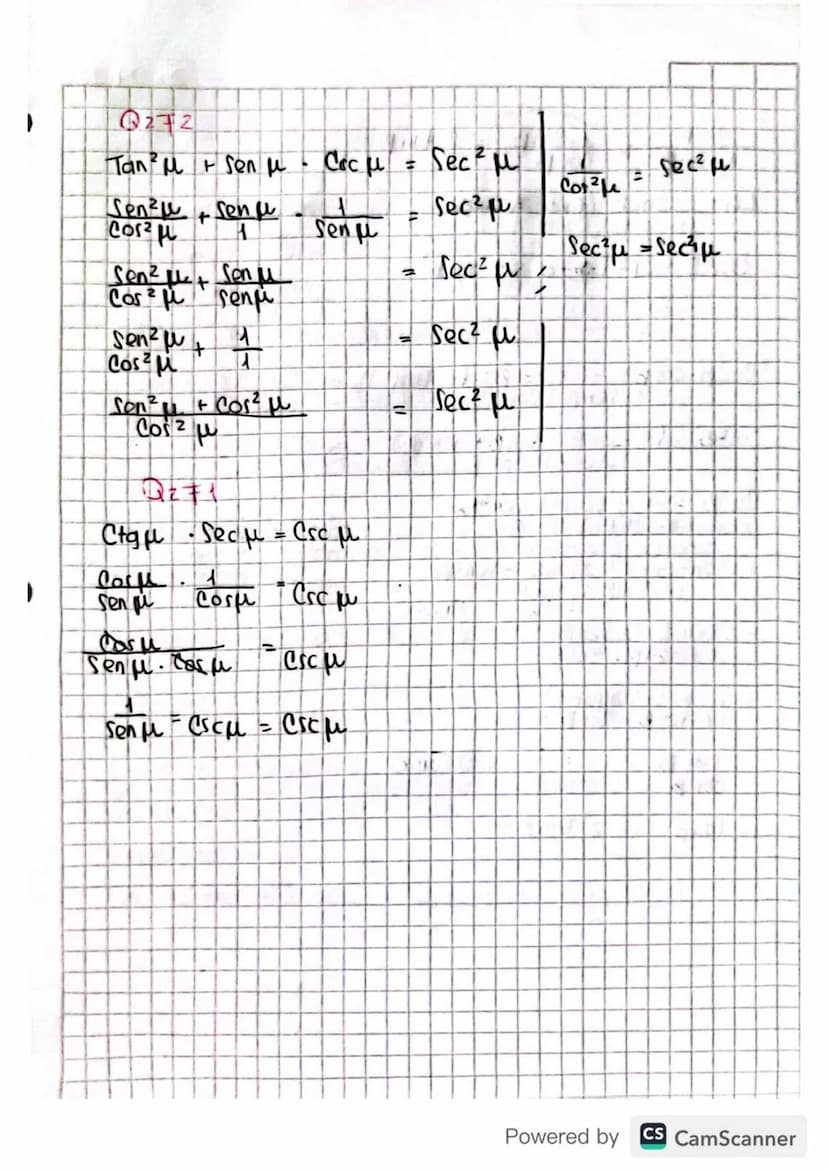 Q272
Tan²μ + Sen μ · Csc μ = Sec² μ
Sen²μ/Cos²μ + Sen μ/1 · 1/Sen μ = Sec² μ
Sen² μ/Cos² μ + Sen μ/Sen μ = Sec² μ ;
Sen² μ/Cos² μ + 1/1 = Sec² μ
Sen² μ + Cos² μ/Cos² μ = Sec² μ
1/Cos² μ = Sec² μ
Sec²μ = Sec²μ
Q271
Ctg μ · Sec μ = Csc μ
Cos μ/Sen μ · 1/Cos μ = Csc μ
Cos μ/Sen μ · Cos μ = Csc μ
1/Sen μ = Csc μ = Csc μ
Powered by CS CamScanner